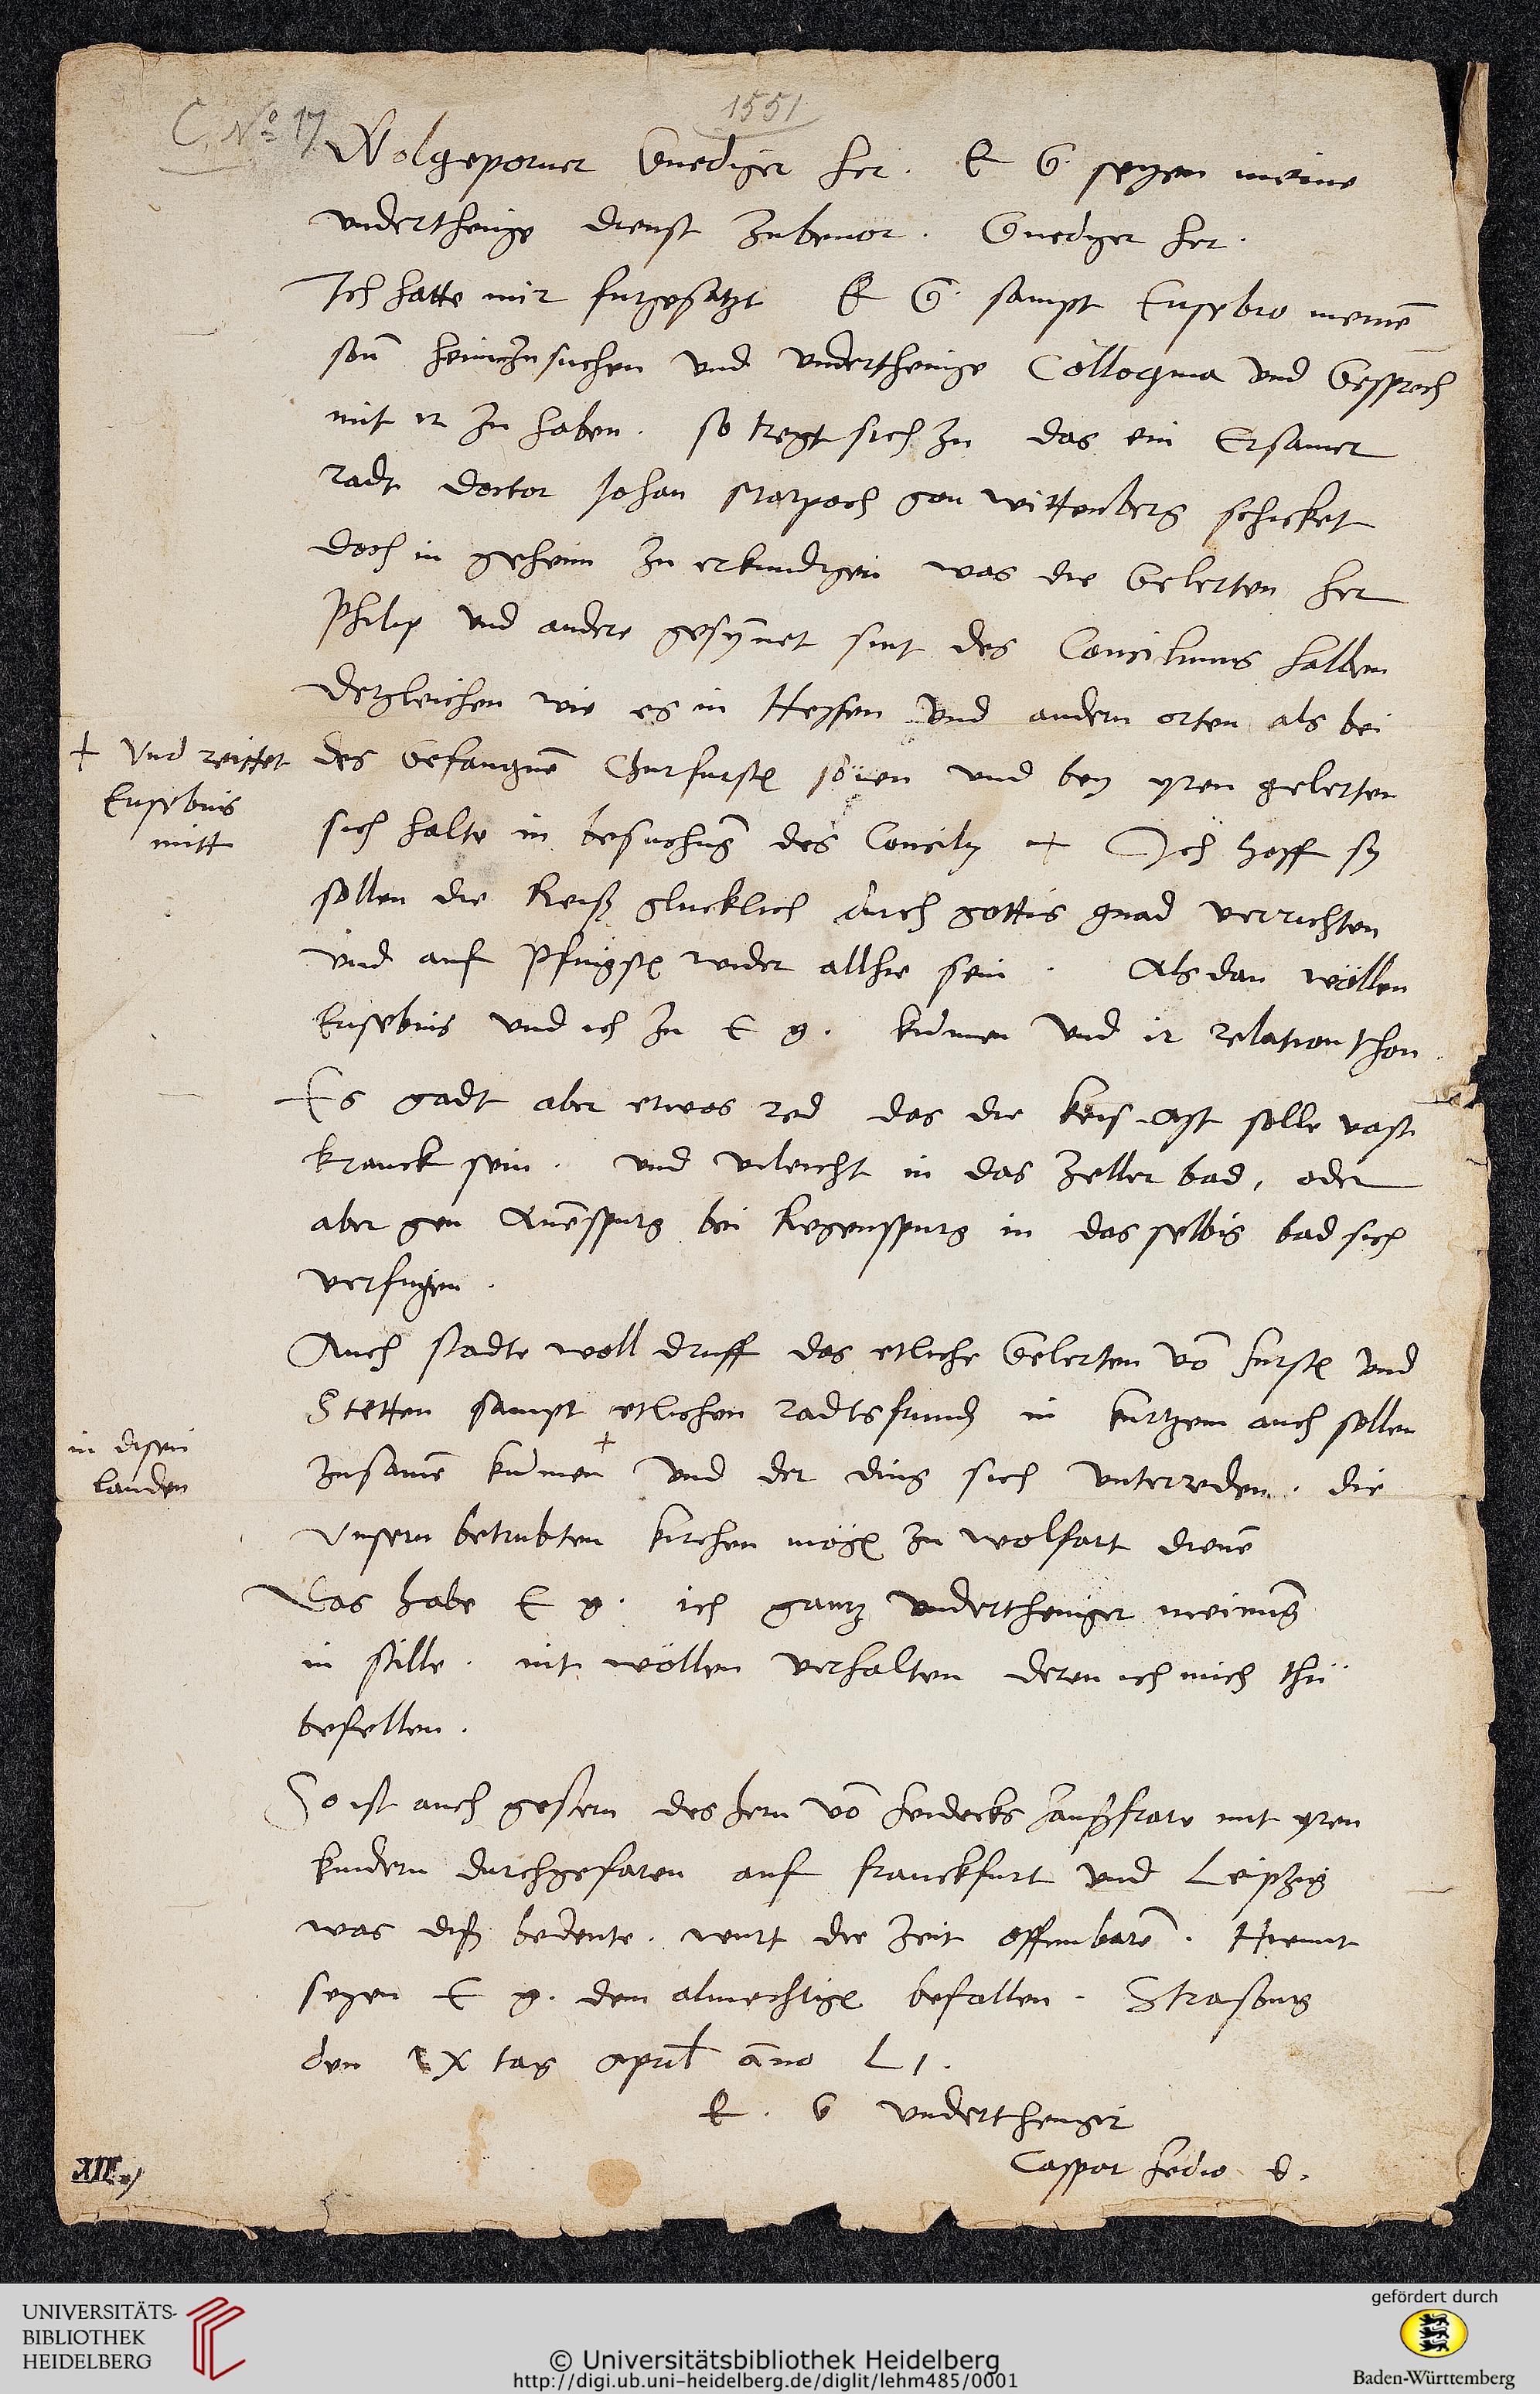 C. No 17
1551
Wolgeporner Gnediger her. E G. seyen meine
underthenige dienst zubevor. Gnediger her.
Ich hatte mir furgesatzt E G. sampt Eusebio meinē
son heimzusuchen und underthenige Colloquia und Gesprech
mit ir zu haben. so tregt sich zu das ein Ersamer
radt doctor Johan Marpach gen wittenberg schicket
doch in geheim zu erkundigen was die Gelerten her
Philip und andere gesynnet sint des Consiliums halben
dergleichen wie es in Hessen und andern orten als bei
+ Und reittet
Eusebius
mitt
des Gefangnē Churfurstē sönen und bey yren gelerten
sich halte in besuchung des Consily + Ich hoff sy
sollen die Reiß glucklich durch gottis gnad verrichten
und auf Pfingstē wider allhie sein. Als dan wöllen
Eusebius und ich zu E g. kummen und ir relation thon.
Es gadt aber etwas red das die keis. Mt solle vast
kranck sein. und vileicht in das Zeller bad, oder
aber gen bei Regenspurg in das selbig bad sich
verfugen.
Auch stadte woll druff das etliche Gelerten vō furstē und
Stetten sampt etlichen radtsfrund in kurtzem auch sollen
in disen
landen
zusamē kummen + und der ding sich unterreden. die
Unsern betrubten kirchen mögē zu wolfart dienē
Das habe E g. ich gantz undertheniger meinung
in stille. nit wöllen verhalten deren ich mich thu
befellen.
So ist auch gestern des hern vō heidecks haußfraw mit yren
kindern durchgefaren auf franckfurt und Leipzig
was diß bedeute. wurt die Zeit offenbarē. Hiemit
seyen E g. dem almechtigē befallen. Strasburg
den IX tag april āno LI.
E. G undertheniger
Caspar Hedio D.
XII.
UNIVERSITÄTS-
BIBLIOTHEK
HEIDELBERG
© Universitätsbibliothek Heidelberg
http://digi.ub.uni-heidelberg.de/diglit/lehm485/0001
gefördert durch
Baden-Württemberg